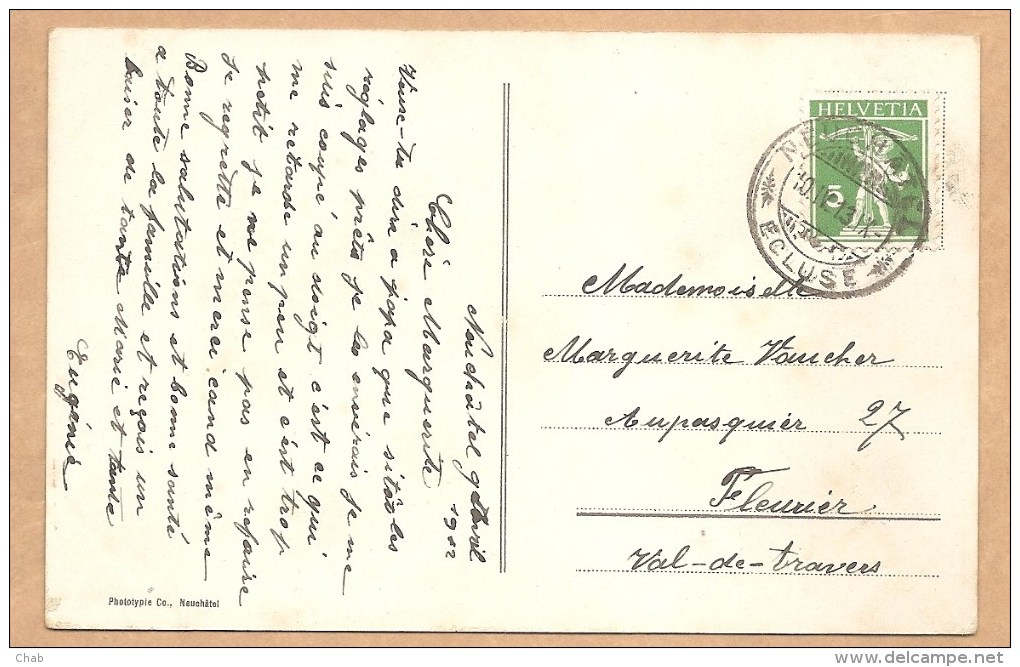 Neuchâtel 9 Avril
1912
Chère Marguerite
Veux-tu dire a papa que sitôt les
réglages prêts je les enverrais je me
suis coupé au doigt c'est ce qui
me retarde un peu et c'est trop
petit je ne pense pas en refaire
je regrette et merci cand même
Bonne salutations et bonne santé
a toute la famille et reçois un
baiser de tante Marie et tante
Eugénie
Phototypie Co., Neuchâtel
HELVETIA
5
NEUCHATEL
ECLUSE
Mademoiselle
Marguerite Vaucher
Aupasquier 27
Fleurier
Val-de-travers
Chab
delcampe.net